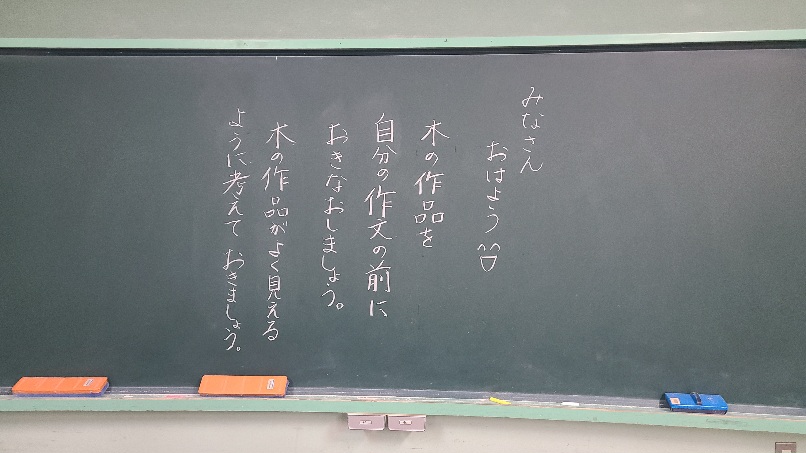 みなさん
おはよう
木の作品を
自分の作文の前に
おきなおしましょう。
木の作品がよく見える
ように考えて おきましょう。